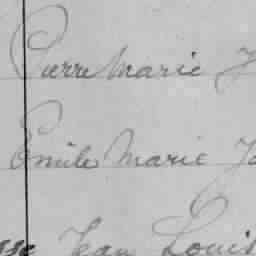 Pierre Marie J
Emile Marie Jo
Jean Louis